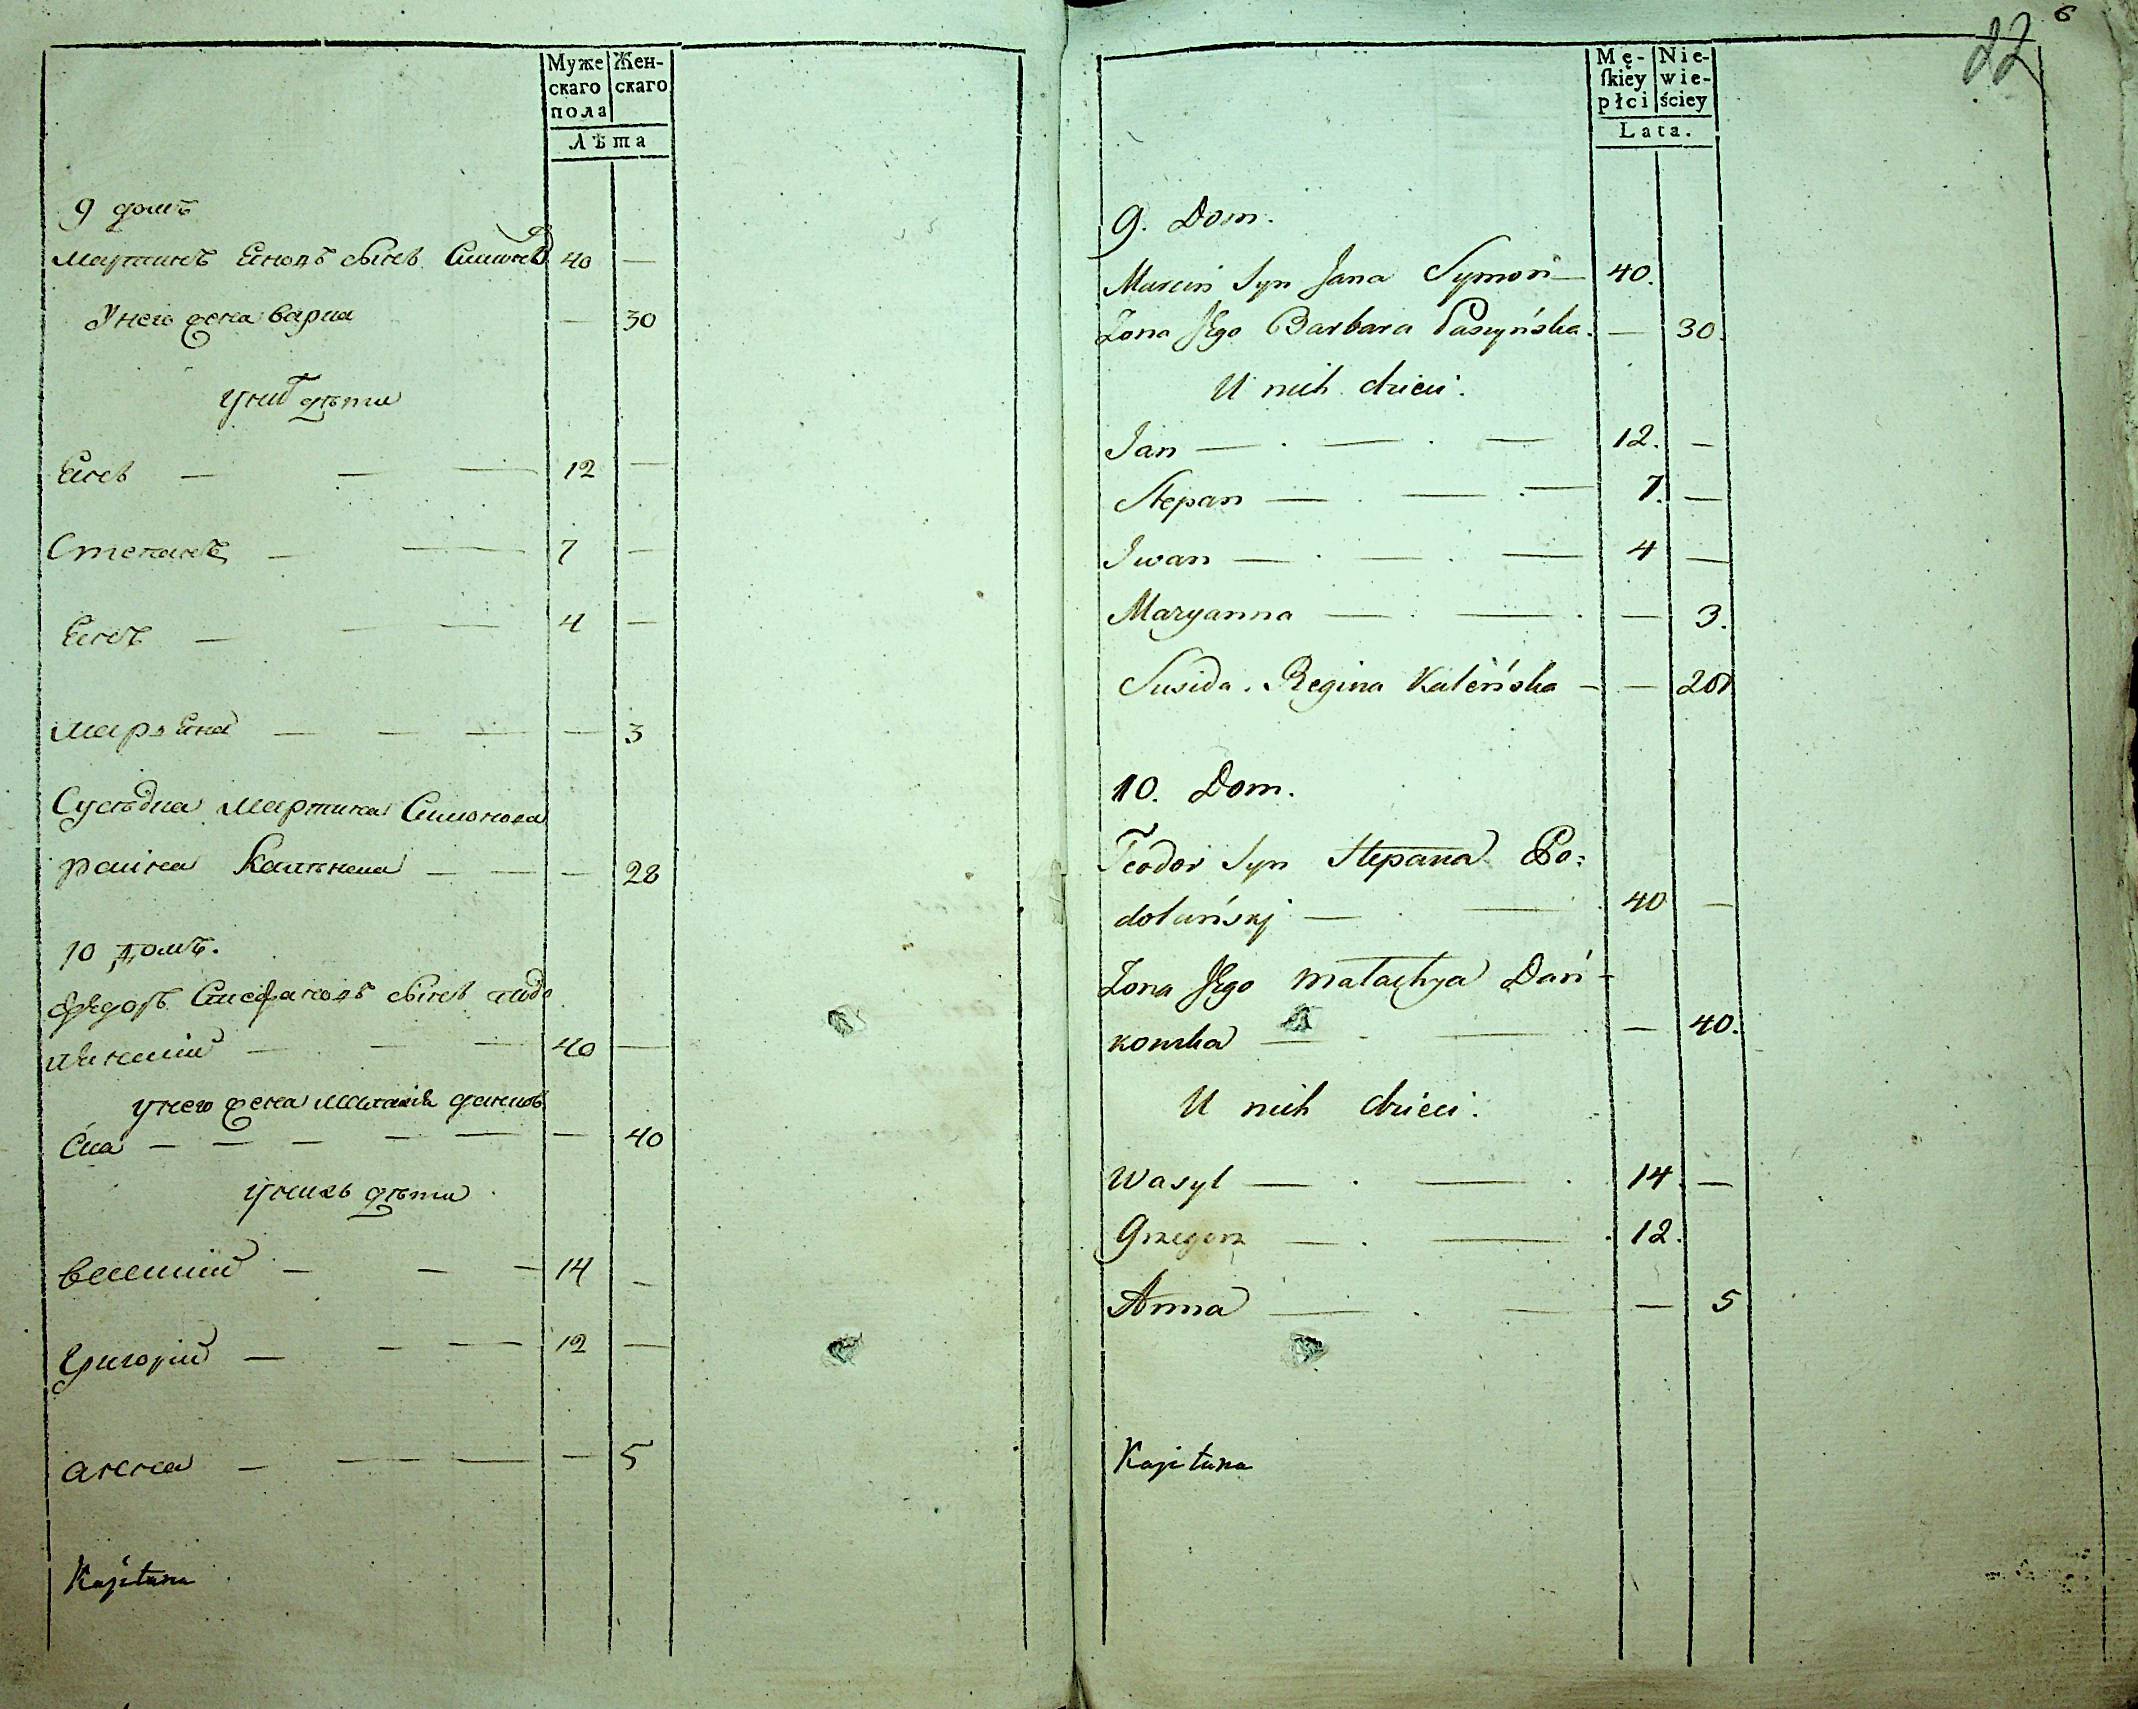 Муже
скаго
пола
Жен-
скаго
Лѣта
9 домъ
Мартинъ Еновъ сынъ Симонъ 40 —
У него жена варка — 30
У них дѣти
Енъ — — — 12 —
Степанъ — — 7 —
Енъ — — — 4 —
Марьяна — — — — 3
Сусѣдка Мартина Симонова
раина — — — 28
10 домъ.
Федоръ Стефановъ сынъ подо
— — — 40 —
у него жена Малахія данков
ска — — — — — — 40
у нихъ дѣти
василий — — — 14 —
Григорій — — — 12 —
анна — — — — — 5
Kapitana
6
22
Mę-
ſkiey
płci
Nie-
wie-
ściey
Lata.
9. Dom.
Marcin Syn Jana Symon — 40.
Żona Jego Barbara Paszyńska. — 30.
U nich dzieci.
Jan — . — . — 12. —
Stepan — . — . — 7. —
Iwan — . — . — 4 —
Maryanna — . — . — 3.
Susida. Regina Kaleńska — — 28
10. Dom.
Teodor Syn Stepana Po:
dolański — . — . 40 —
Żona Jego Małachya Dań-
kowska — . — . — 40.
U nich dzieci.
Wasyl — . — . 14. —
Grzegorz — . — . 12.
Anna — . — — 5
Kapitana